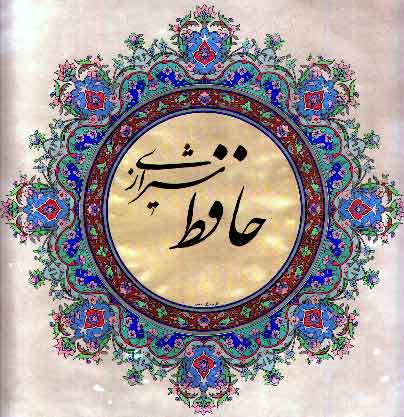 حافظ
شیرازی